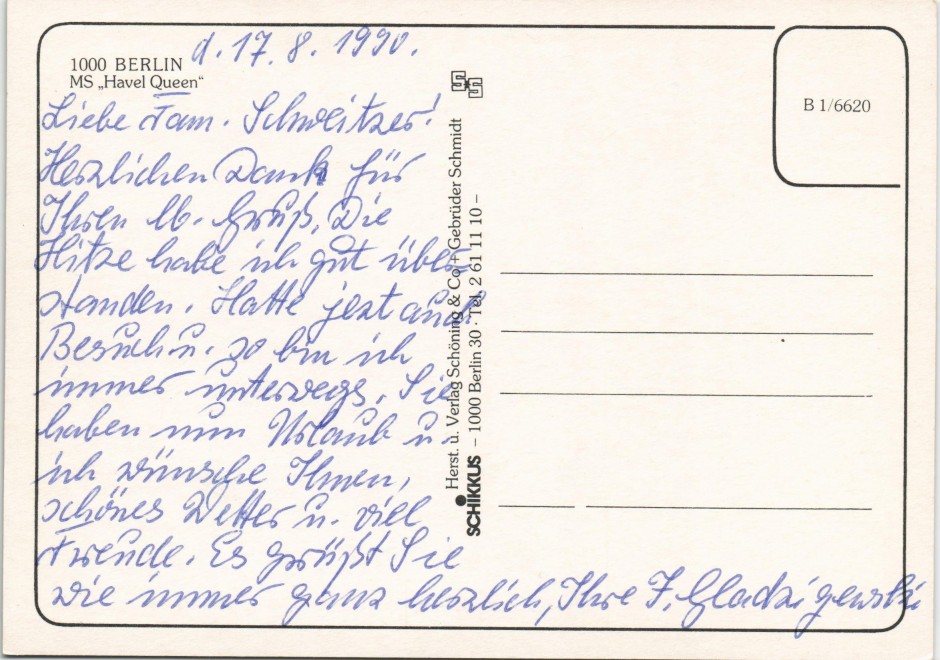 d. 17. 8. 1990.
1000 BERLIN
MS „Havel Queen“
Liebe Fam. Schweitzer!
Herzlichen Dank für
Ihren lb. Gruß, Die
Hitze habe ich gut über
standen. Hatte jezt auch
Besuch u. so bin ich
immer unterwegs. Sie
haben nun Urlaub u.
ich wünsche Ihnen,
schönes Wetter u. viel
Freude. Es grüßt Sie
wie immer ganz herzlich, Ihre F. Gladzigewski
Herst. u. Verlag Schöning & Co + Gebrüder Schmidt
SCHIKKUS – 1000 Berlin 30 · Tel. 2 61 11 10 –
B 1/6620